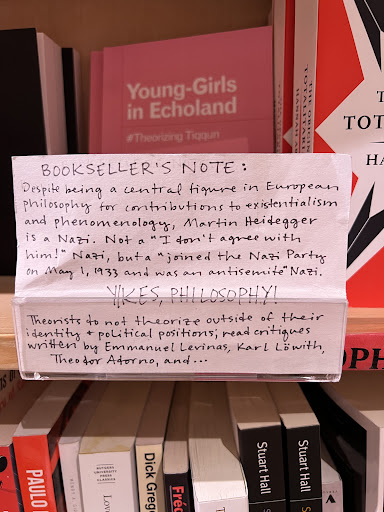 Young-Girls
in Echoland
#Theorizing Tiqqun
THE ORIGINS
TOTALITARIAN
HANNAH
T
TOTA
HANNAH
BOOKSELLER'S NOTE:
Despite being a central figure in European
philosophy for contributions to existentialism
and phenomenology, Martin Heidegger
is a Nazi. Not a "I don't agree with
him!" Nazi, but a "joined the Nazi Party
on May 1, 1933 and was an antisemite" Nazi.
YIKES, PHILOSOPHY!
Theorists to not theorize outside of their
identity + political positions; read critiques
written by Emmanuel Levinas, Karl Löwith,
Theodor Adorno, and...
PAULO
Dick Greg
Stuart Hall
Stuart Hall